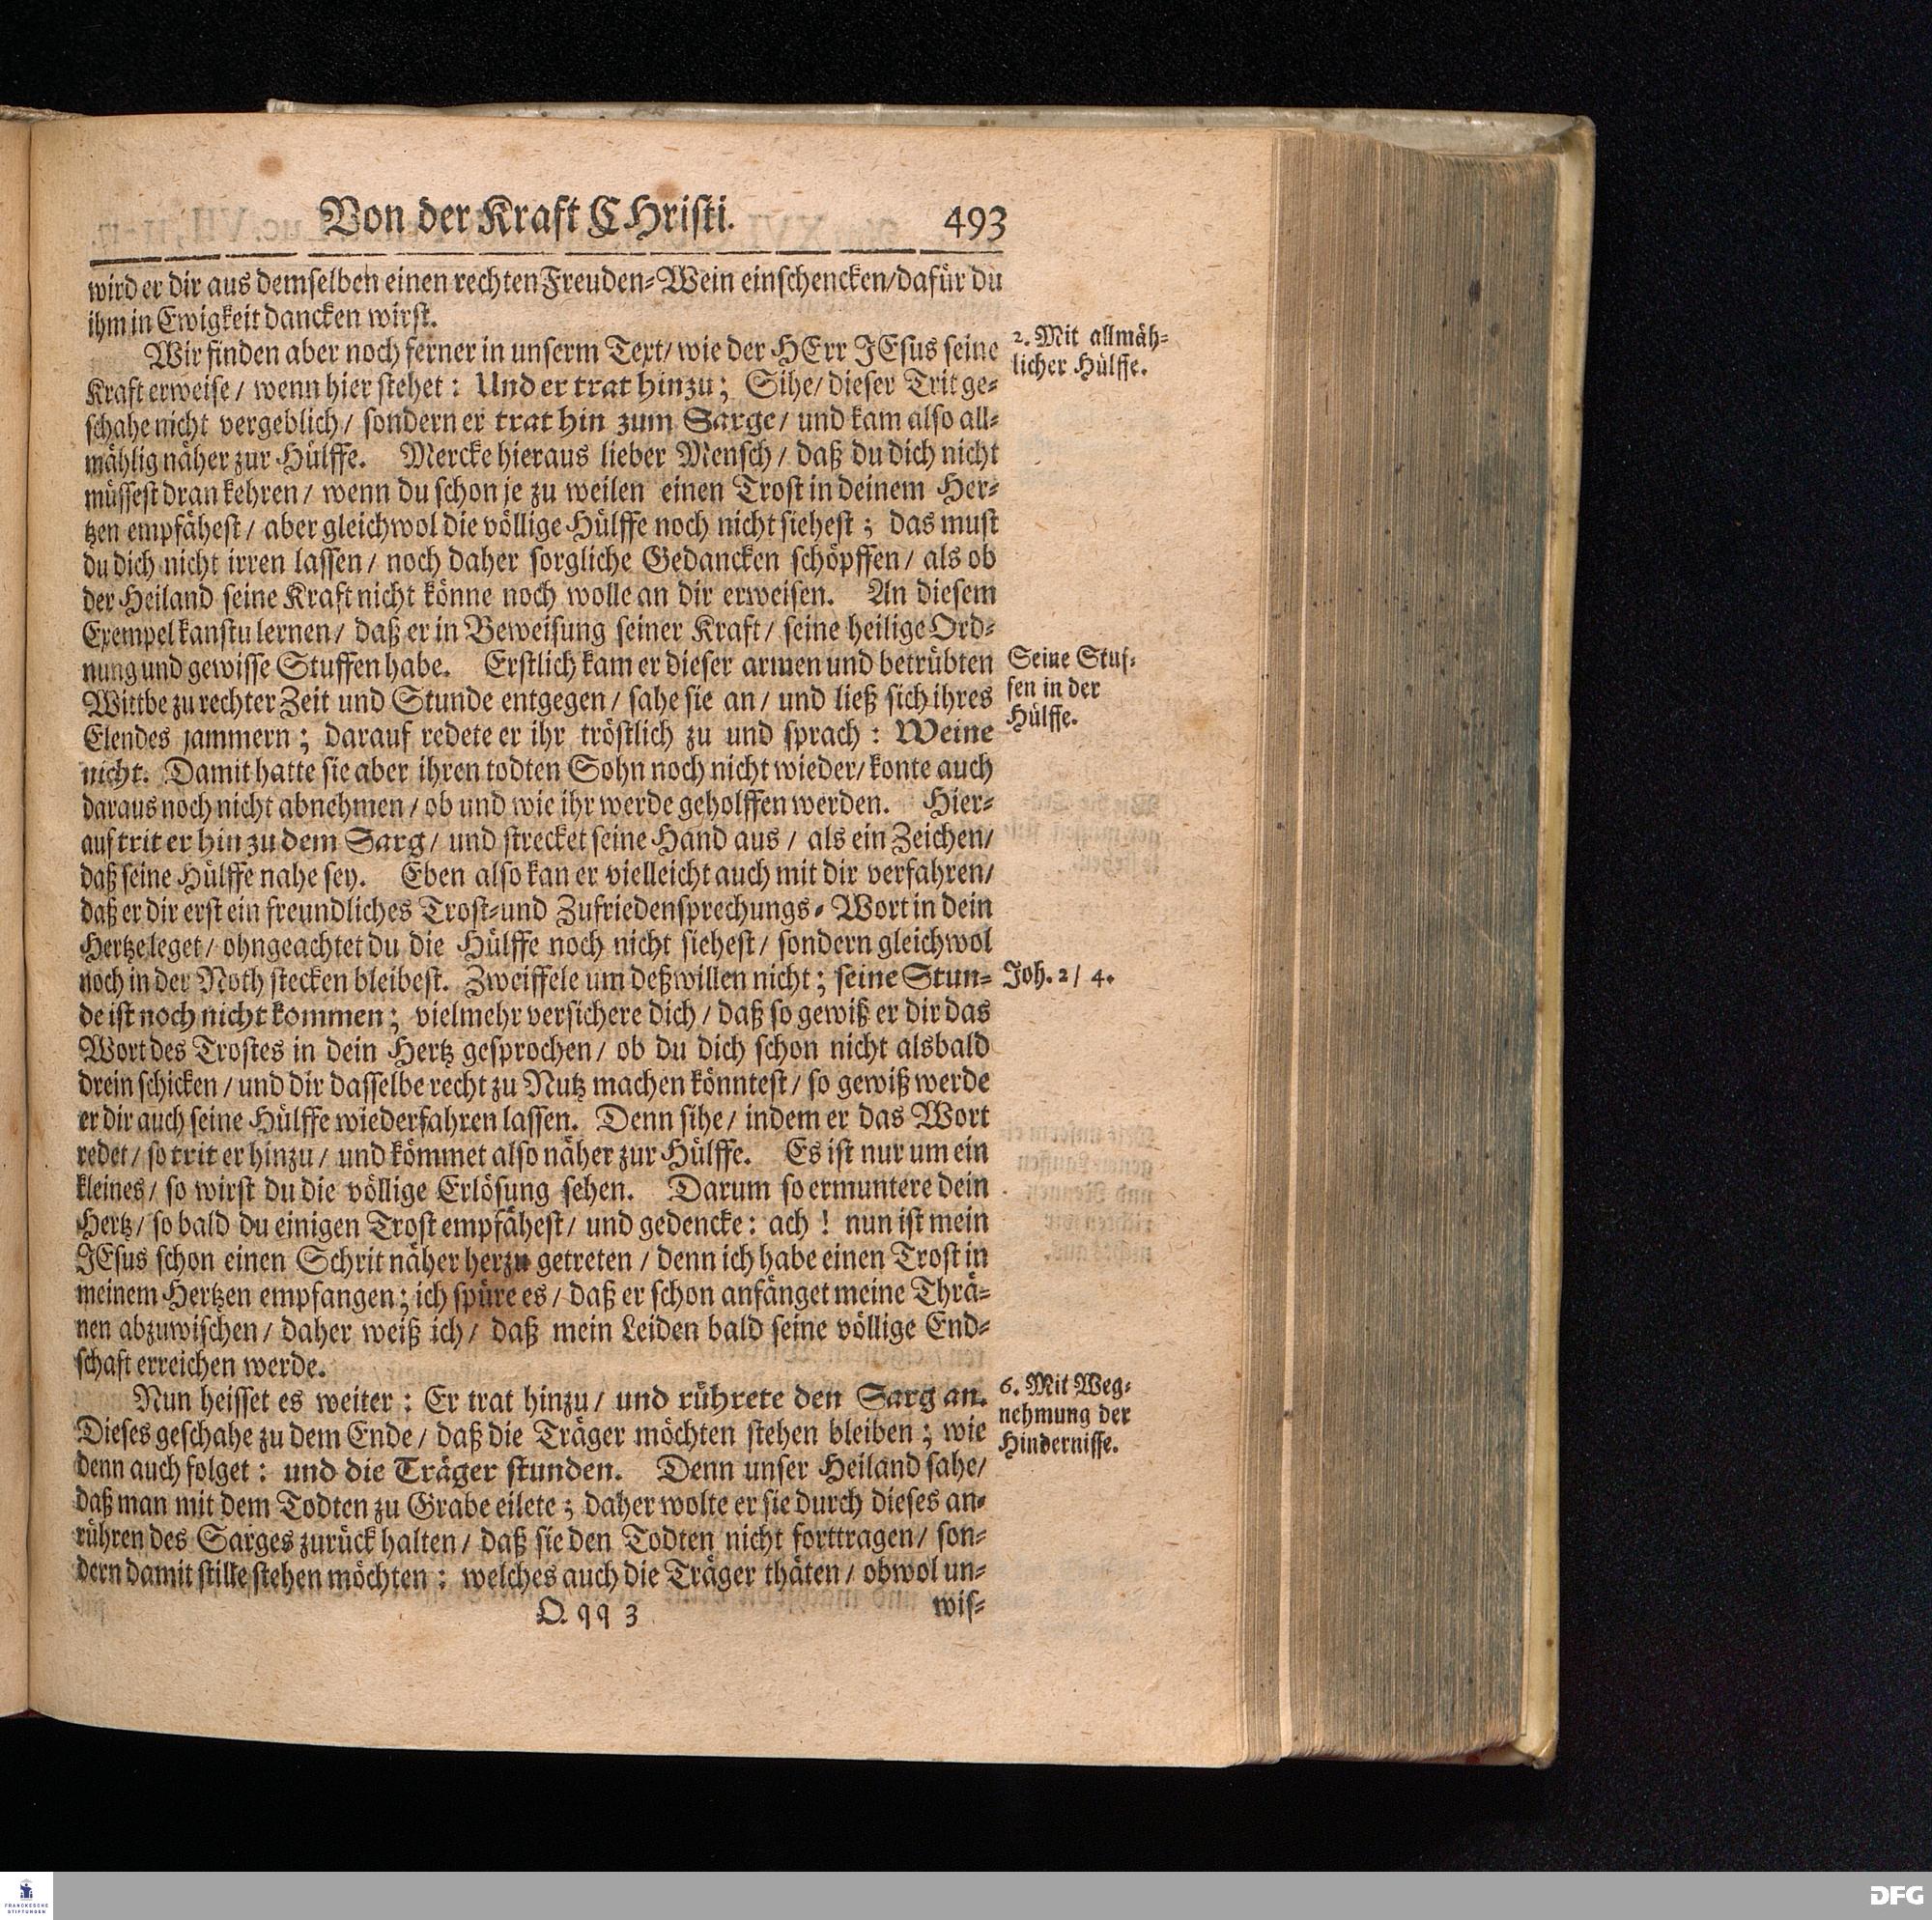 Von der Kraft CHristi. 493
wird er dir aus demselben einen rechten Freuden-Wein einschencken/dafür du
ihm in Ewigkeit dancken wirst.
Wir finden aber noch ferner in unserm Text/ wie der HErr JEsus seine
Kraft erweise/ wenn hier stehet: Und er trat hinzu; Sihe/ dieser Trit ge-
schahe nicht vergeblich/ sondern er trat hin zum Sarge/ und kam also all-
mählig näher zur Hülffe. Mercke hieraus lieber Mensch/ daß du dich nicht
müssest dran kehren/ wenn du schon je zu weilen einen Trost in deinem Her-
tzen empfähest/ aber gleichwol die völlige Hülffe noch nicht siehest; das must
du dich nicht irren lassen/ noch daher sorgliche Gedancken schöpffen/ als ob
der Heiland seine Kraft nicht könne noch wolle an dir erweisen. An diesem
Exempel kanstu lernen/ daß er in Beweisung seiner Kraft/ seine heilige Ord-
nung und gewisse Stuffen habe. Erstlich kam er dieser armen und betrübten
Wittbe zu rechter Zeit und Stunde entgegen/ sahe sie an/ und ließ sich ihres
Elendes jammern; darauf redete er ihr tröstlich zu und sprach: Weine
nicht. Damit hatte sie aber ihren todten Sohn noch nicht wieder/ konte auch
daraus noch nicht abnehmen/ ob und wie ihr werde geholffen werden. Hier-
auf trit er hin zu dem Sarg/ und strecket seine Hand aus/ als ein Zeichen/
daß seine Hülffe nahe sey. Eben also kan er vielleicht auch mit dir verfahren/
daß er dir erst ein freundliches Trost-und Zufriedensprechungs-Wort in dein
Hertze leget/ ohngeachtet du die Hülffe noch nicht siehest/ sondern gleichwol
noch in der Noth stecken bleibest. Zweiffele um deßwillen nicht; seine Stun-
de ist noch nicht kommen; vielmehr versichere dich/ daß so gewiß er dir das
Wort des Trostes in dein Hertz gesprochen/ ob du dich schon nicht alsbald
drein schicken/ und dir dasselbe recht zu Nutz machen könntest/ so gewiß werde
er dir auch seine Hülffe wiederfahren lassen. Denn sihe/ indem er das Wort
redet/ so trit er hinzu/ und kömmet also näher zur Hülffe. Es ist nur um ein
kleines/ so wirst du die völlige Erlösung sehen. Darum so ermuntere dein
Hertz/ so bald du einigen Trost empfähest/ und gedencke: ach! nun ist mein
JEsus schon einen Schrit näher herzu getreten/ denn ich habe einen Trost in
meinem Hertzen empfangen; ich spüre es/ daß er schon anfänget meine Thrä-
nen abzuwischen/ daher weiß ich/ daß mein Leiden bald seine völlige End-
schaft erreichen werde.
Nun heisset es weiter: Er trat hinzu/ und rührete den Sarg an.
Dieses geschahe zu dem Ende/ daß die Träger möchten stehen bleiben; wie
denn auch folget: und die Träger stunden. Denn unser Heiland sahe/
daß man mit dem Todten zu Grabe eilete; daher wolte er sie durch dieses an-
rühren des Sarges zurück halten/ daß sie den Todten nicht forttragen/ son-
dern damit stille stehen möchten: welches auch die Träger thäten/ obwol un-
Qqq 3 wis-
2. Mit allmäh-
licher Hülffe.
Seine Stuf-
fen in der
Hülffe.
Joh. 2/ 4.
6. Mit Weg-
nehmung der
Hindernisse.
FRANCKESCHE
STIFTUNGEN
DFG